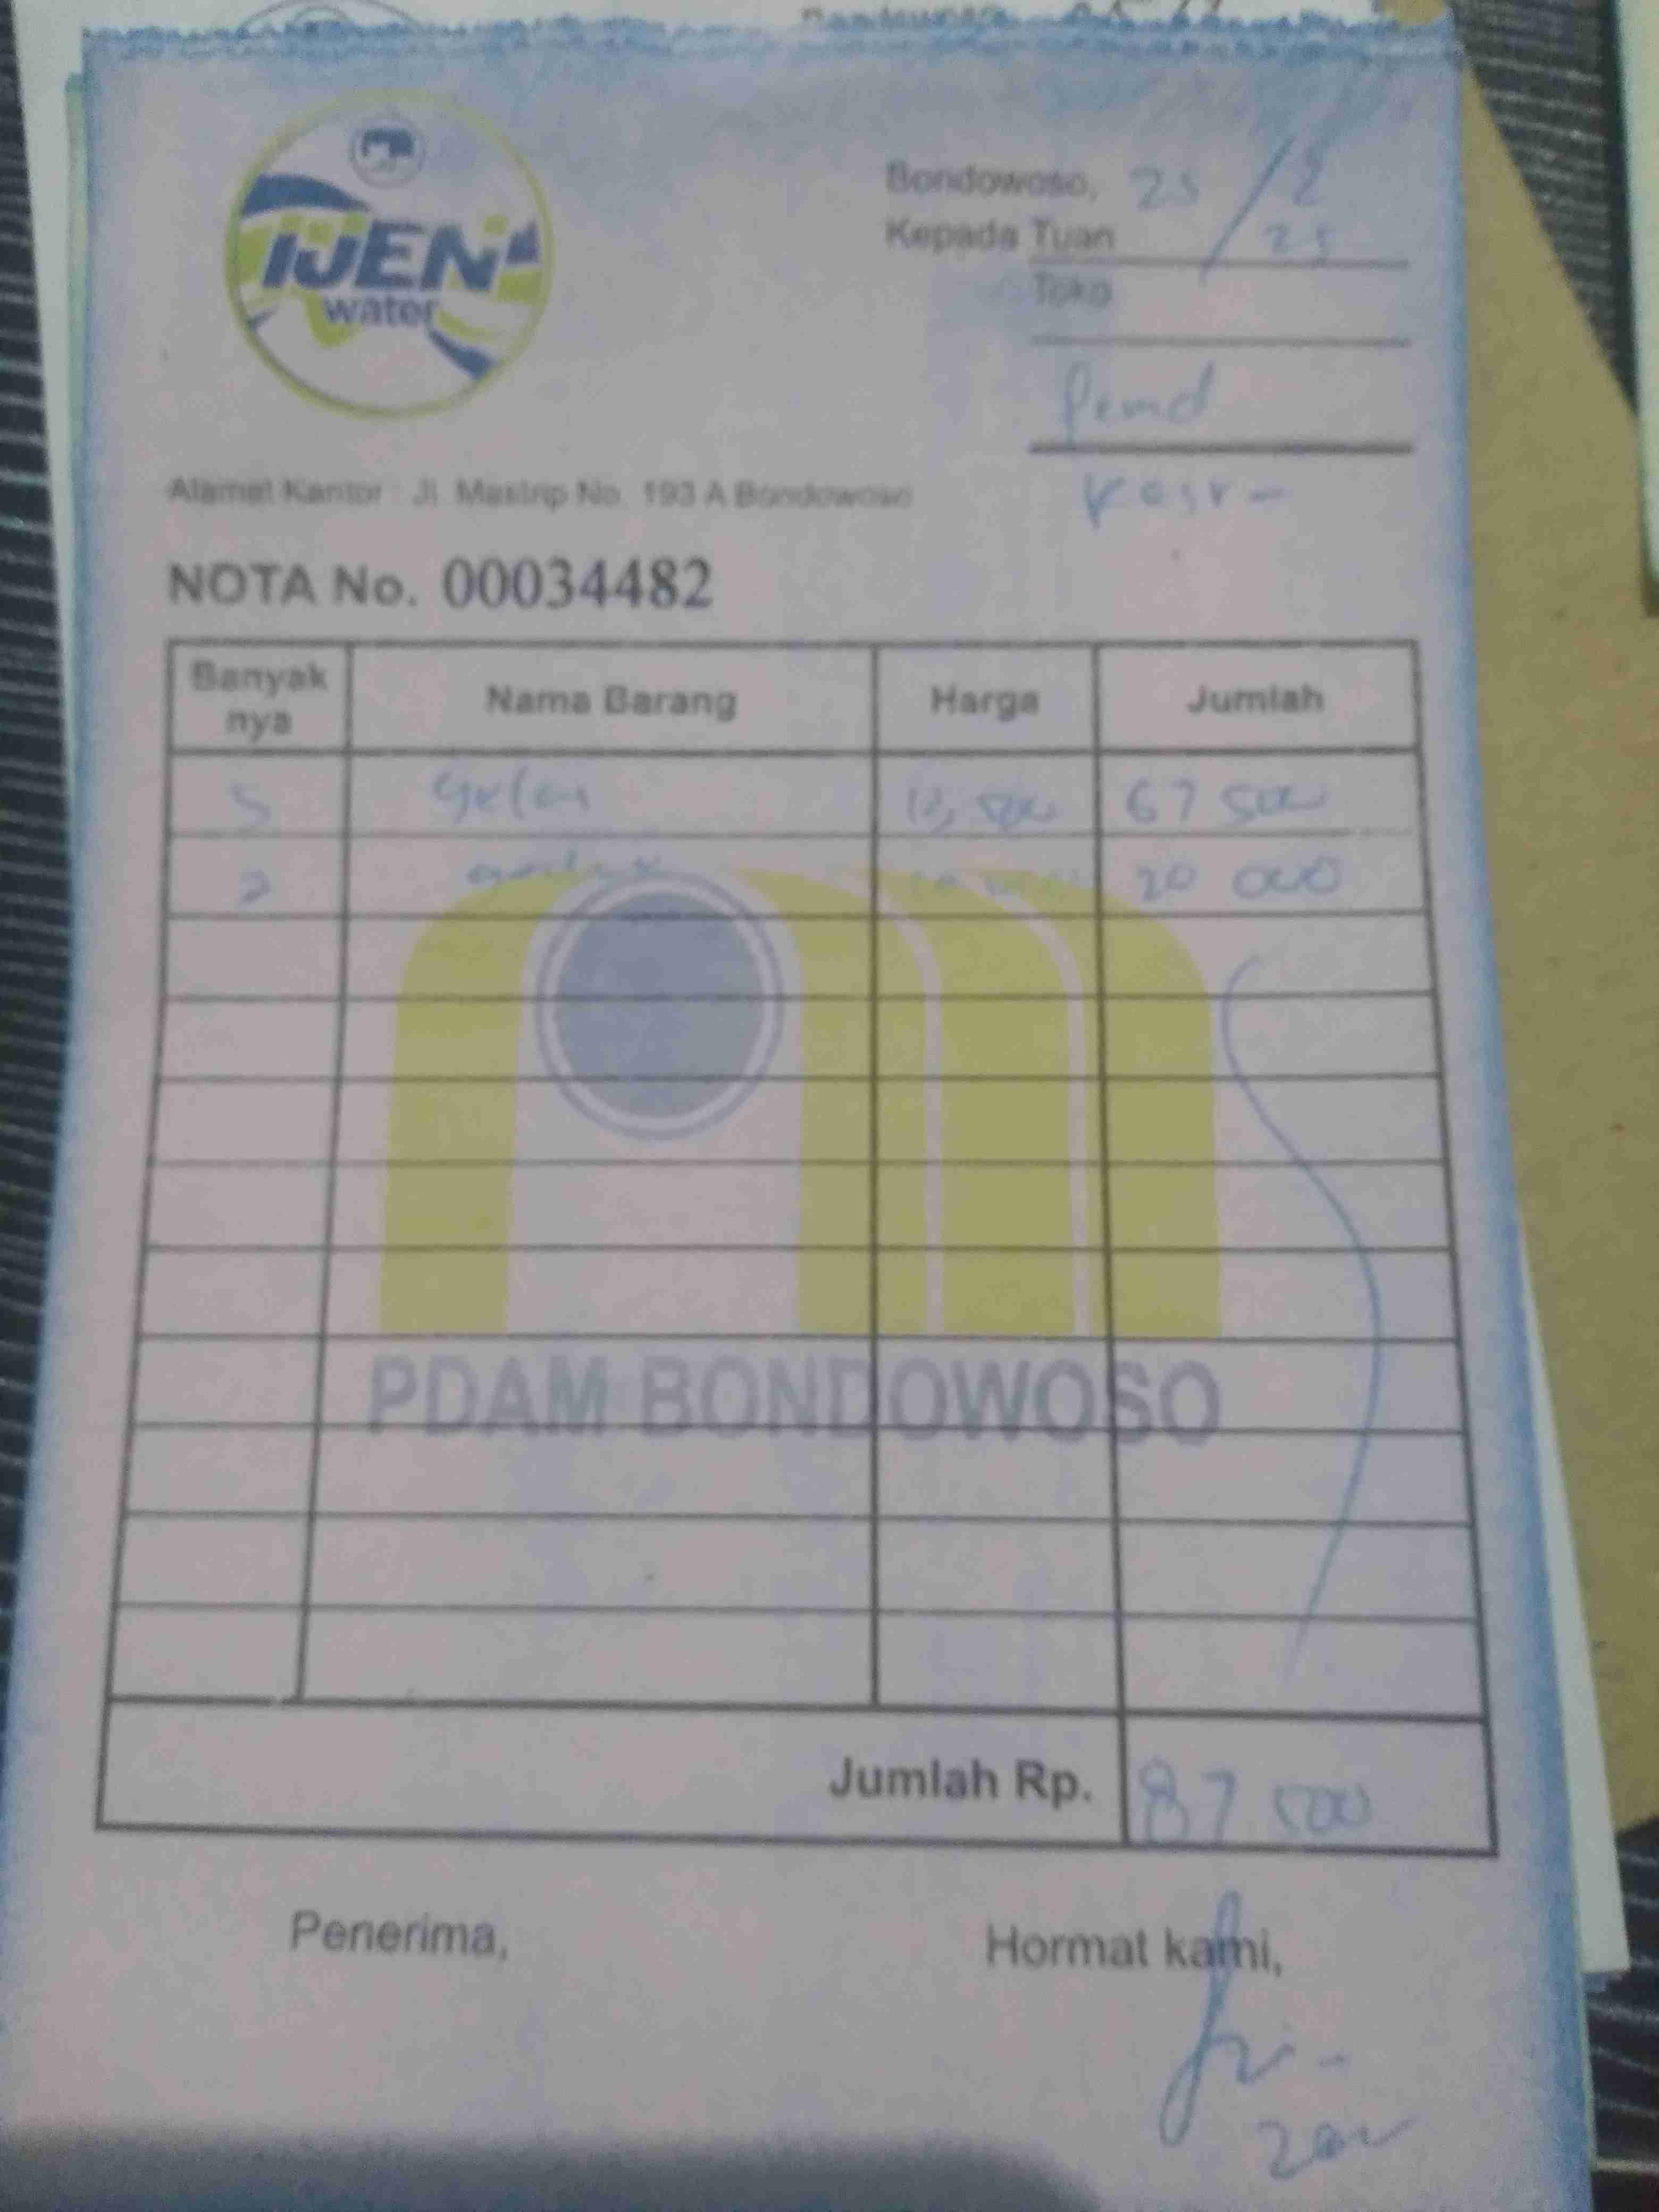 IJEN
water
Bondowoso, 25/8
25
Kepada Tuan
Toko
Pemd
Alamat Kantor : Jl. Mastrip No. 193 A Bondowoso
NOTA No. 00034482
Banyak nya Nama Barang Harga Jumlah
5 gelas 13,500 67 500
2 20 000
PDAM BONDOWOSO
Jumlah Rp. 87 500
Penerima, Hormat kami,